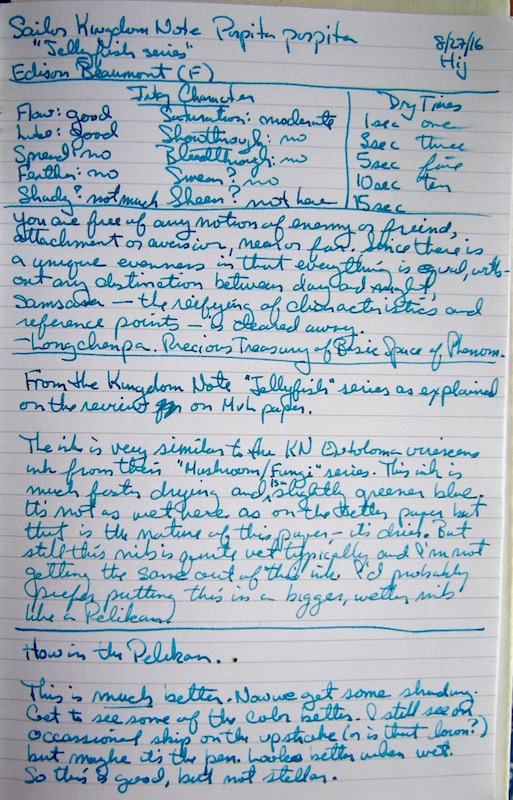 Sailor Kingdom Note Porpita porpita 8/27/16
"Jellyfish series" Hij
Edison Beaumont (F)
Inky Character Dry Times
Flow: good Saturation: moderate 1sec one
Lube: good Showthrough: no 3sec three
Spread: no Bleedthrough: no 5sec five
Feather: no Smear? no 10sec ten
Shady? not much Sheen? not here 15sec
You are free of any notion of enemy or freind,
attachment or aversion, near or far. Since there is
a unique evenness in that everything is equal, with-
out any distination between day and night,
samsara — the reifying of characteristics and
reference points — is cleared away.
-Longchenpa. Precious Treasury of Basic Space of Phenom.
From the Kingdom Note "Jellyfish" series as explained
on the review on Mvh paper.
The ink is very similar to the KN Entoloma virescens
ink from their "Mushroom/Fungi" series. This ink is
much faster drying and is a slightly greener blue.
It's not as wet here as on the other paper but
that is the nature of this paper - it's drier. But
still this nib is quite wet typically and I'm not
getting the same out of this ink. I'd probably
prefer putting this in a bigger, wetter nib
like a Pelikan.
Now in the Pelikan..
This is much better. Now we get some shading.
Get to see some of the color better. I still see an
occassional skip on the upstroke (or is that down?)
but maybe it's the pen. Looks better when wet.
So this is good, but not stellar.